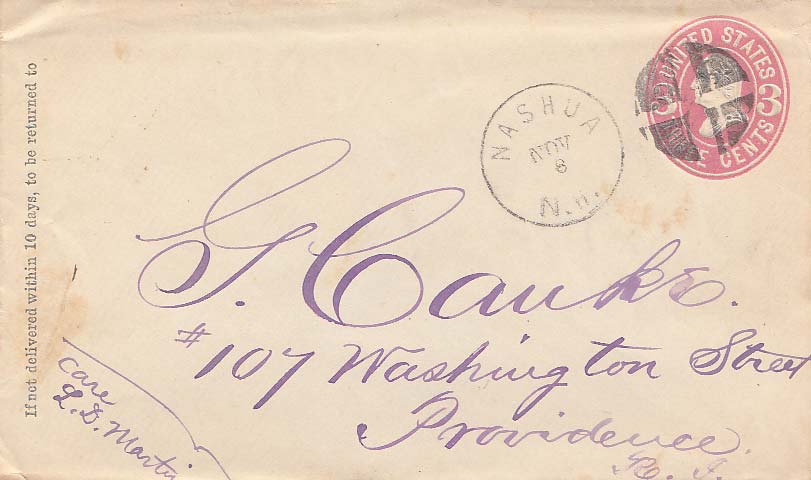 If not delivered within 10 days, to be returned to
UNITED STATES
3 3
CENTS
NASHUA
NOV
8
N.H.
G.
#107 Washington Street
Providence.
R. I.
care
L. D. Martin